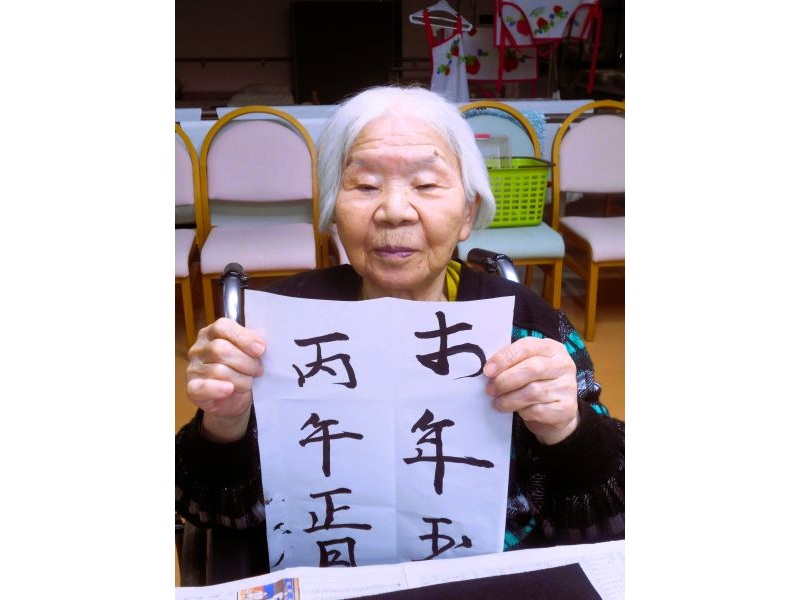 お年玉
丙午正月